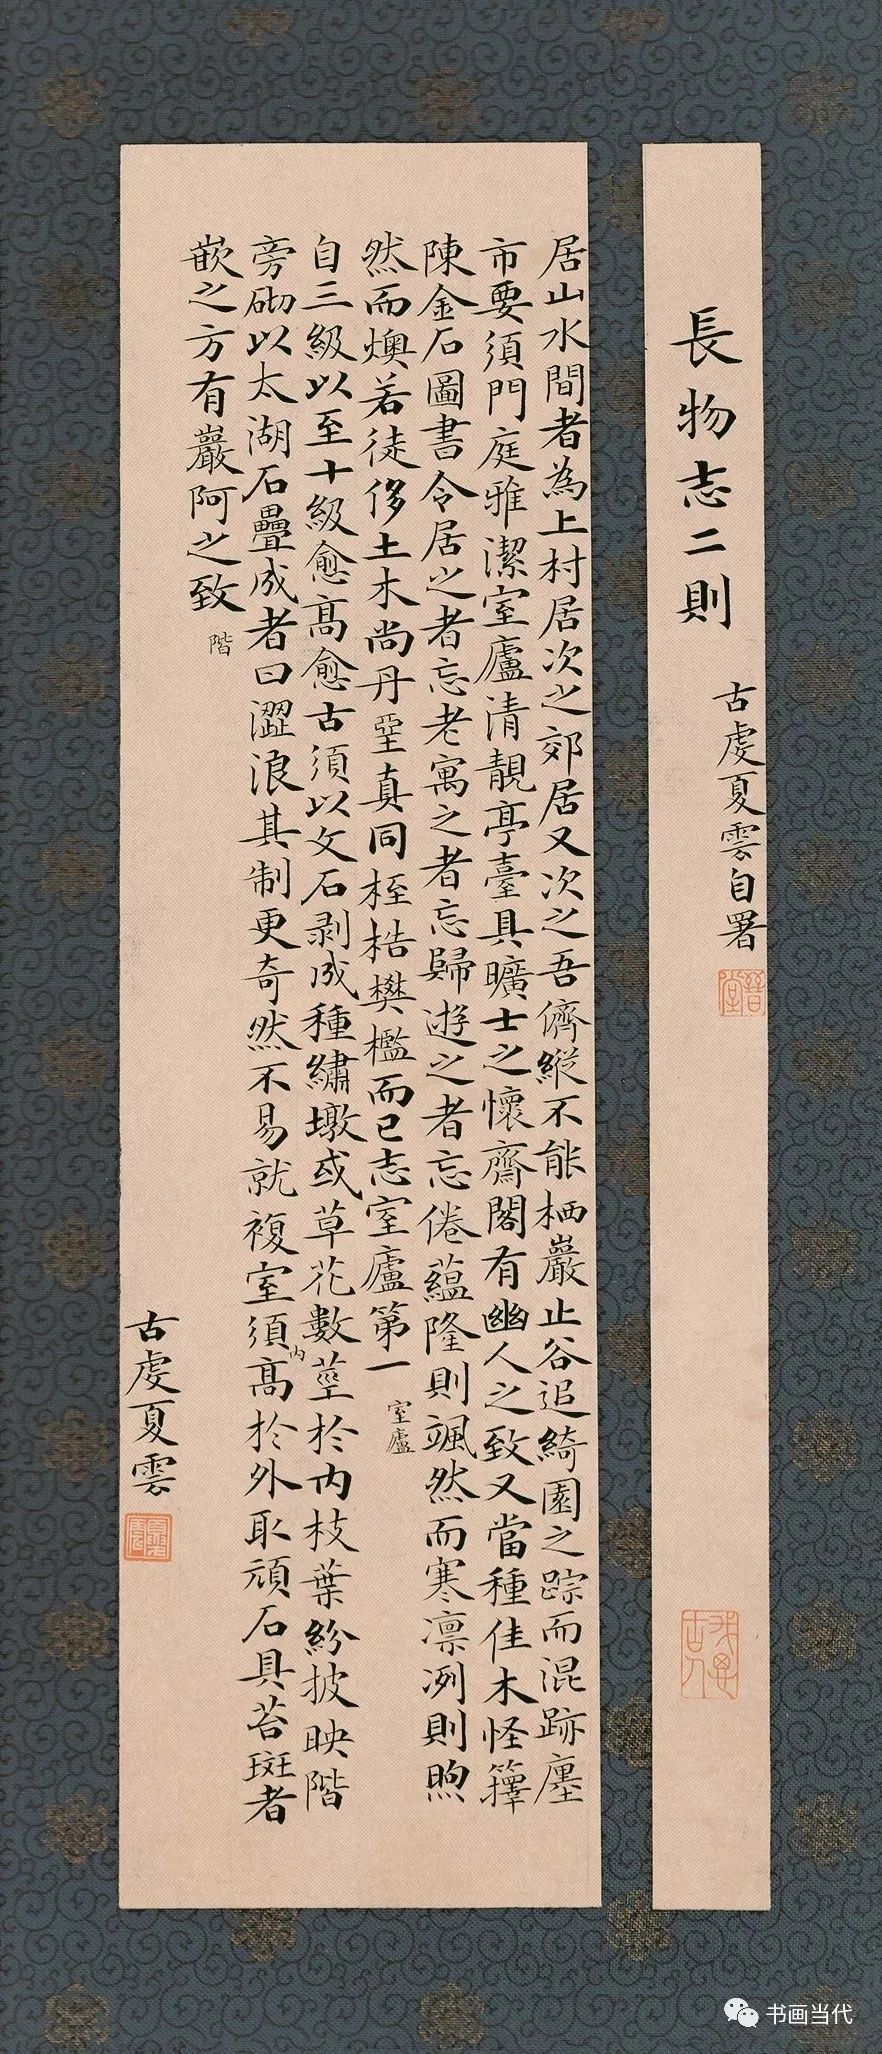 長物志二則
古虔夏雲自署
居山水間者為上村居次之郊居又次之吾儕縱不能栖巖止谷追綺園之踪而混跡廛
市要須門庭雅潔室廬清靚亭臺具曠士之懷齋閣有幽人之致又當種佳木怪籜
陳金石圖書令居之者忘老寓之者忘歸遊之者忘倦蘊隆則颯然而寒凛冽則煦
然而燠若徒侈土木尚丹堊真同桎梏樊檻而已志室廬第一
室廬
自三級以至十級愈高愈古須以文石剥成種繡墩或草花數莖於内枝葉紛披映階
旁砌以太湖石疊成者曰澀浪其制更奇然不易就複室須高於外取頑石具苔斑者
内
嵌之方有巖阿之致
階
古虔夏雲
书画当代